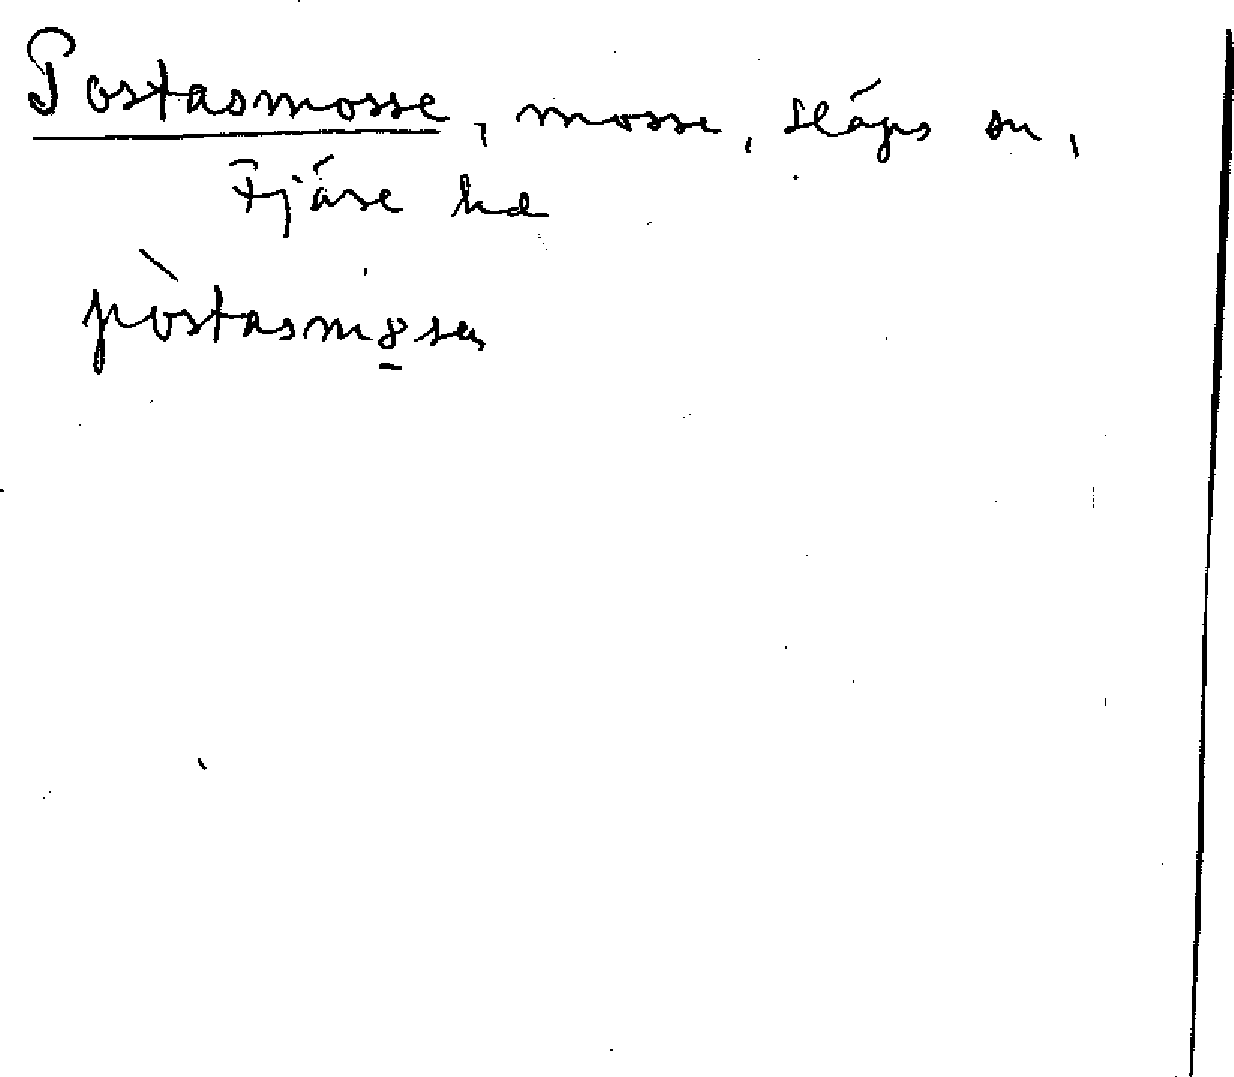 Postasmosse, mosse, Släps sn,
Fjäre hd
pòstasm8sa